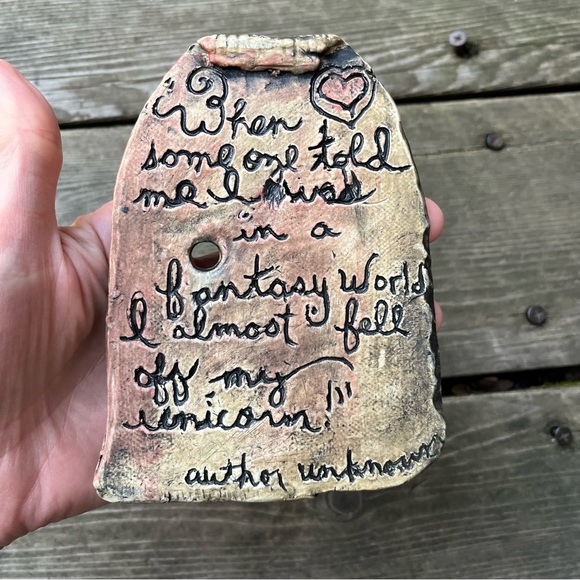 "When
some one told
me I was
in a
fantasy world
I almost fell
off my
unicorn!"
author unknown